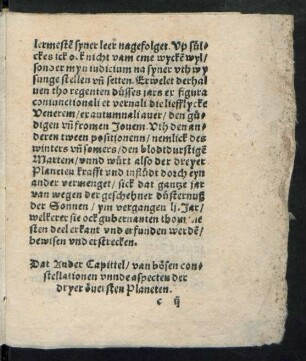 lermestē syner leer nagefolget. Vp sül-
ckes ick ock nicht vam eme wyckē wyl/
sonder myn iudicium na syner vth wy
sunge stellen vñ setten. Erwelet derhal
uen tho regenten düsses jars ex figura
coniunctionali et vernali die liefflycke
Venerem/ ex autumnali auer/ den gü-
digen vñ fromen Jouem. Vth den an-
deren tween positionenn/ nemlick des
winters vñ somers/ den blodtdurstigē
Martem/ vnnd würt also der dreyer
Planeten krafft vnd influtz dorch eyn
ander vermenget/ sick dat gantze jar
van wegen der geschehner düsternuß
der Sonnen/ ym vergangen lj. Jar/
welkerer sie ock gubernanten thom
esten deel erkant vnd erfunden werdē/
bewisen vnd erstrecken.
Dat Ander Capittel/ van bösen con-
stellationen vnnde aspecten der
dryer öuersten Planeten.
c ij